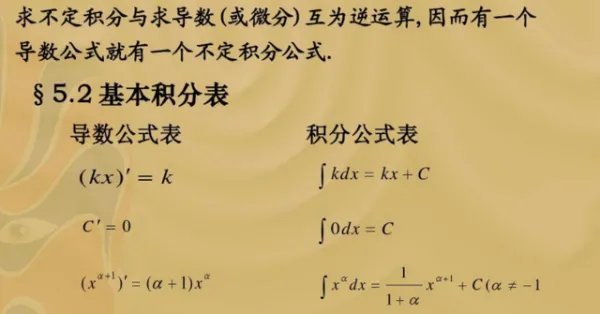 求不定积分与求导数(或微分)互为逆运算,因而有一个
导数公式就有一个不定积分公式.
§5.2 基本积分表
导数公式表 积分公式表
(kx)′ = k ∫kdx = kx + C
C′ = 0 ∫0dx = C
(x^{α+1})′ = (α+1)x^α ∫x^α dx = \frac{1}{1+α} x^{α+1} + C(α ≠ -1